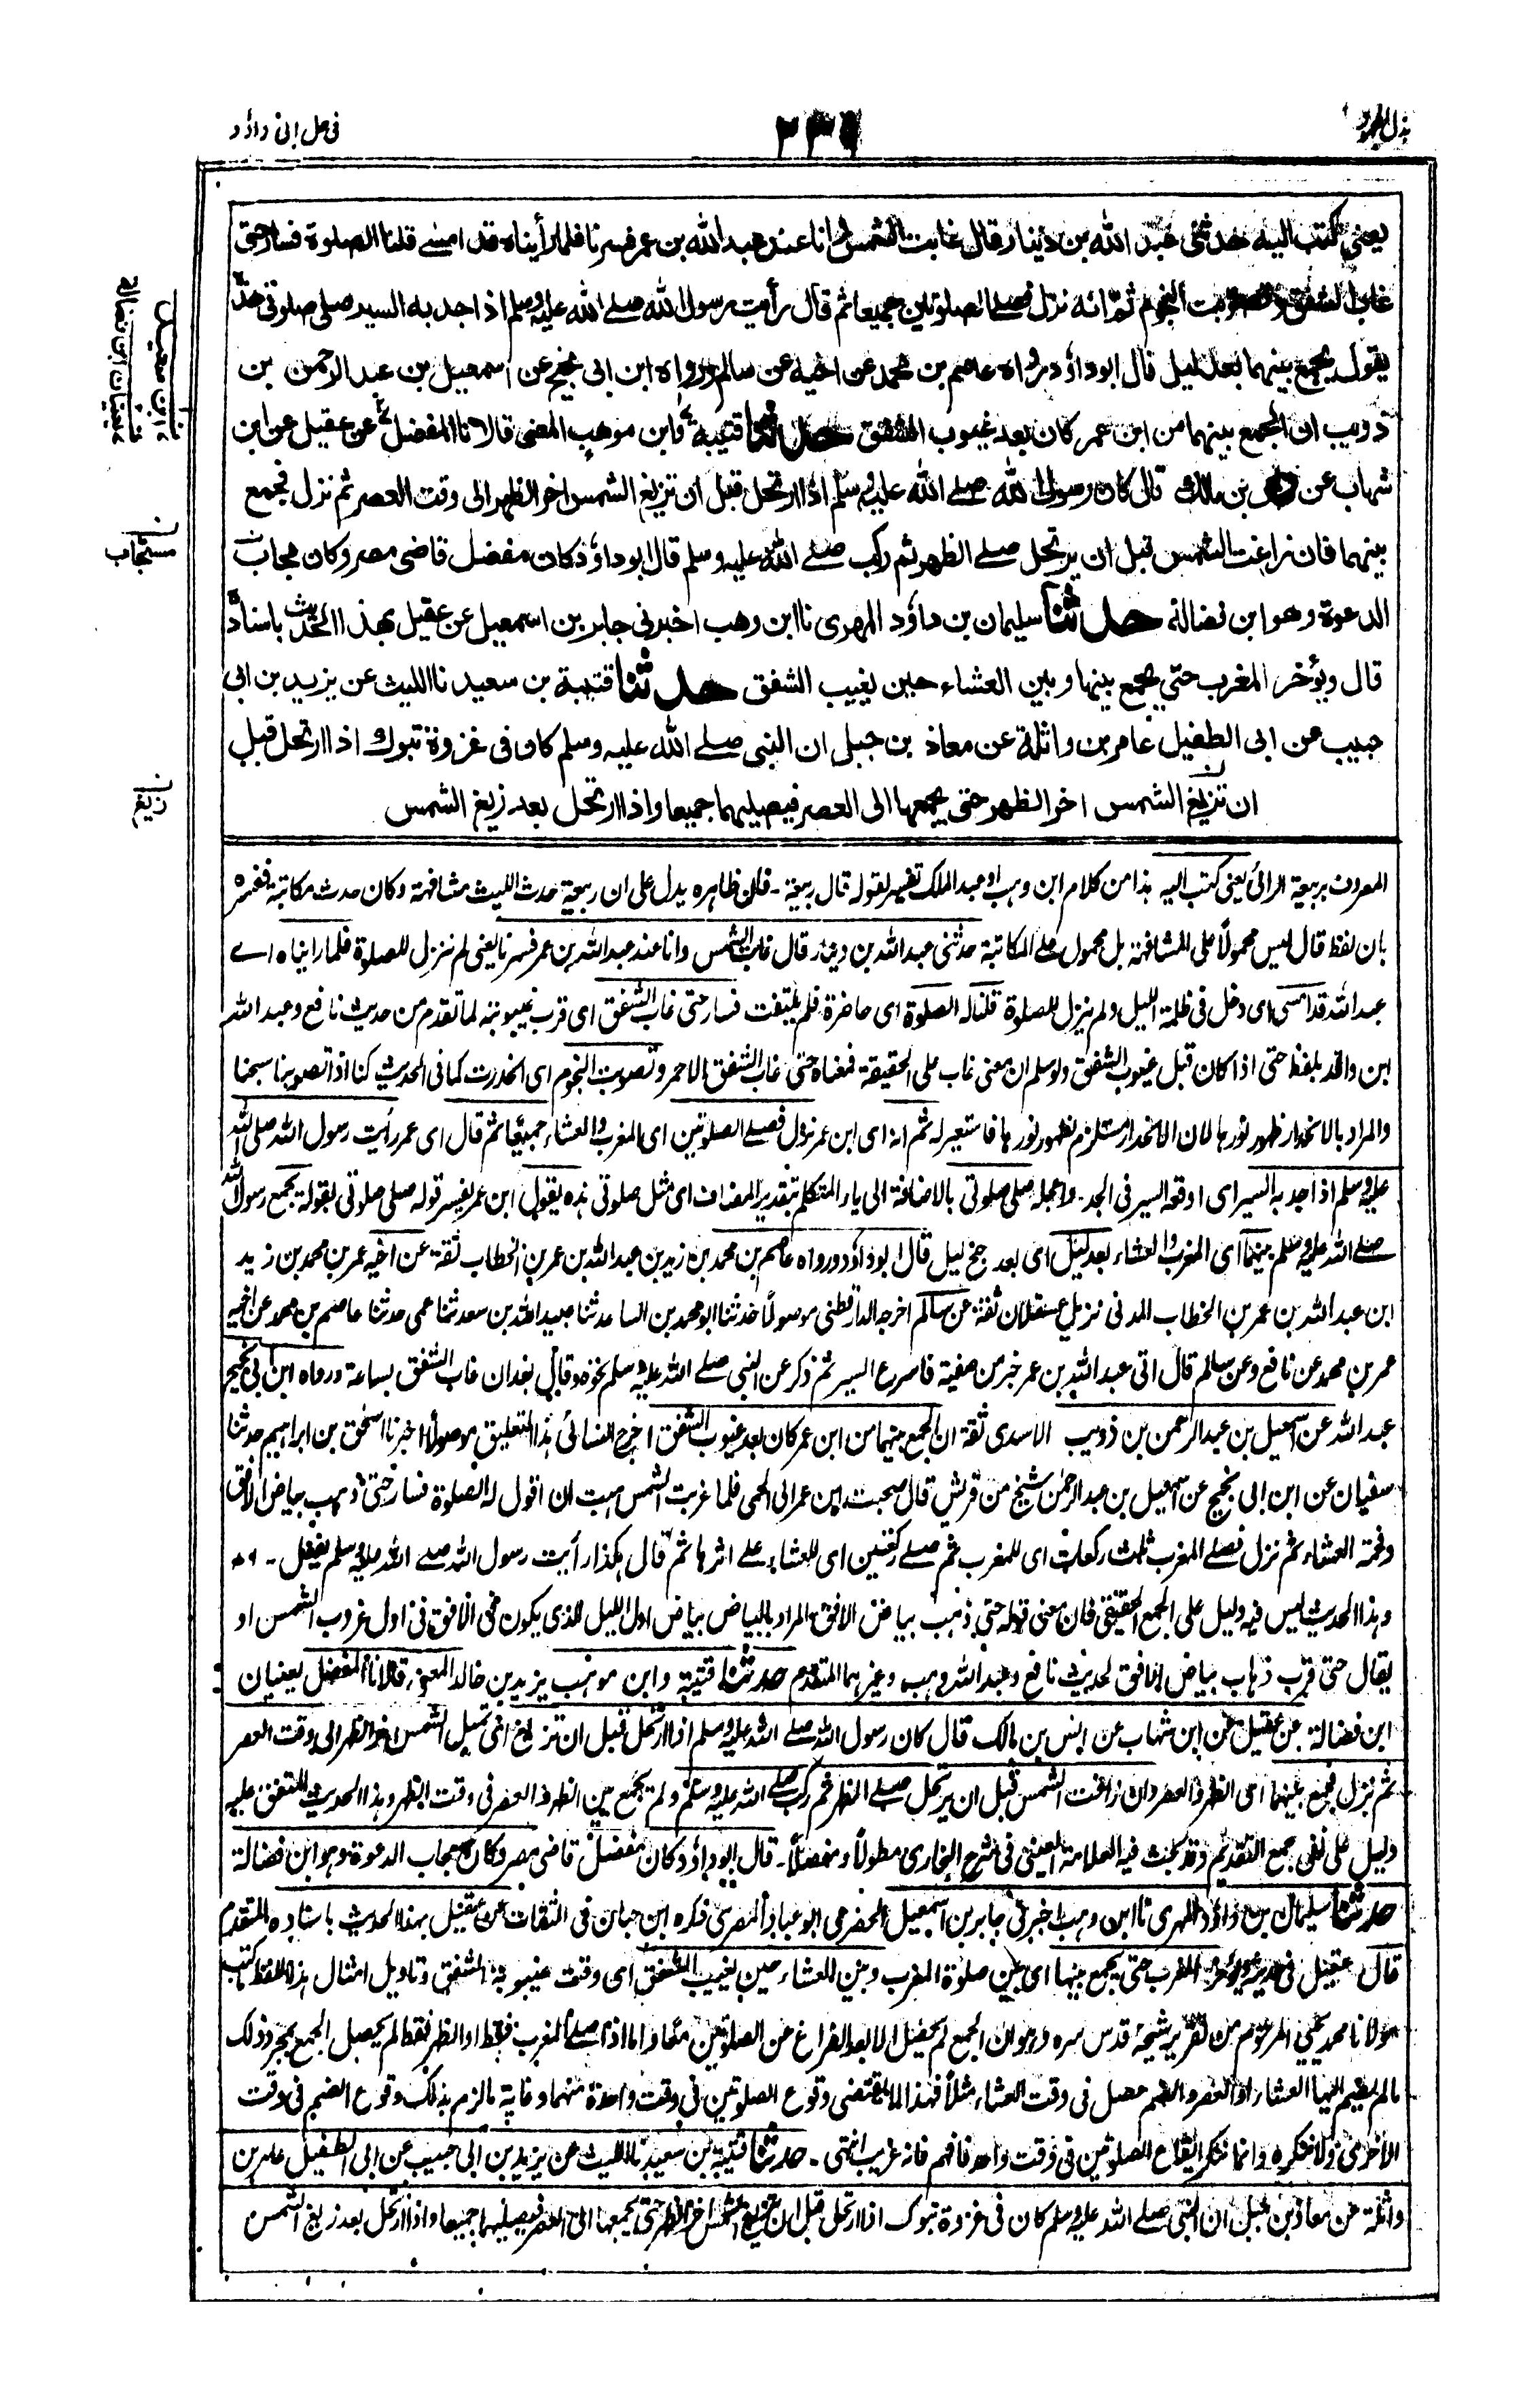 بذل المجهود
٢٣٦
في حل ابى داؤد
يعنى كتب اليه حدثنى عبد الله بن دينار قال غابت الشمس وانا عند عبد الله بن عمر فسرنا فلما رأيناه قد امسى قلنا الصلوة فسار حتى
غاب الشفق وتصوبت النجوم ثم انه نزل فصلى الصلوتين جميعا ثم قال رأيت رسول الله صلى الله عليه وسلم اذا جد به السير صلى صلوتى هذه
يقول يجمع بينهما بعد ليل قال ابو داؤد رواه عاصم بن محمد عن اخيه عن سالم ورواه ابن ابى نجيح عن اسمعيل بن عبد الرحمن بن
ذويب ان الجمع بينهما من ابن عمر كان بعد غيوب الشفق حدثنا قتيبة وابن موهب المعنى قالا نا المفضل عن عقيل عن ابن
شهاب عن بن مالك قال كان رسول الله صلى الله عليه وسلم اذا ارتحل قبل ان تزيغ الشمس اخر الظهر الى وقت العصر ثم نزل فجمع
بينهما فان زاغت الشمس قبل ان يرتحل صلى الظهر ثم ركب صلى الله عليه وسلم قال ابو داؤد كان مفضل قاضى مصر وكان مجاب
الدعوة وهو ابن فضالة حدثنا سليمان بن داؤد المهرى نا ابن وهب اخبرنى جابر بن اسمعيل عن عقيل بهذا الحديث باسناده
قال ويؤخر المغرب حتى يجمع بينها وبين العشاء حين يغيب الشفق حدثنا قتيبة بن سعيد نا الليث عن يزيد بن ابى
حبيب عن ابى الطفيل عامر بن واثلة عن معاذ بن جبل ان النبى صلى الله عليه وسلم كان فى غزوة تبوك اذا ارتحل قبل
ان تزيغ الشمس اخر الظهر حتى يجمعها الى العصر فيصليهما جميعا واذا ارتحل بعد زيغ الشمس
مستجاب
زيغ
المعروف بربيعة الرائى يعنى كتب اليه هذا من كلام ابن وهب او عبد الملك تفسير لقوله قال ربيعة - فان ظاهره يدل على ان ربيعة حدث الليث مشافهة وكان حدث مكاتبة ففسره
بان لفظ قال ليس محمولاً على المشافهة بل محمول على المكاتبة حدثنى عبد الله بن دينار قال غابت الشمس وانا عند عبد الله بن عمر فسرنا يعنى لم ننزل للصلوة فلما رايناه اے
عبد الله قد امسى اى دخل فى ظلمة الليل ولم ينزل للصلوة قلنا له الصلوة اى حاضرة فلم يلتفت فسار حتى غاب الشفق اى قرب غيبوبته لما تقدم من حديث نافع وعبد الله
ابن واقد بلفظ حتى اذا كان قبل غيوب الشفق ولو سلم ان معنى غاب على الحقيقة فمعناه حتى غاب الشفق الاحمر وتصوبت النجوم اى انحدرت كما فى الحديث كنا اذا تصوبنا سبحنا
والمراد بالانحدار ظهور نورها لان الانحدار مستلزم لظهور نورها فاستعير له ثم انه اى ابن عمر نزل فصلى الصلوتين اى المغرب والعشاء جميعًا ثم قال اى عمر رأيت رسول الله صلى الله
عليه وسلم اذا جد به السير اى اوقعه السير فى الجد - واجمله صلى صلوتى بالاضافة الى ياء المتكلم بتقدير المضاف اى مثل صلوتى هذه يقول ابن عمر يفسر قوله صلى صلوتى بقوله يجمع رسول الله
صلى الله عليه وسلم بينهما اى المغرب والعشاء بعد ليل اى بعد جنح ليل قال ابو داؤد ورواه عاصم بن محمد بن زيد بن عبد الله بن عمر بن الخطاب ثقة عن اخيه عمر بن محمد بن زيد
ابن عبد الله بن عمر بن الخطاب المدنى نزيل عسقلان ثقة عن سالم اخرجه الدارقطنى موصولًا حدثنا ابو محمد بن صاعد ثنا عبيد الله بن سعد ثنا عمى حدثنا عاصم بن محمد عن اخيه
عمر بن محمد عن نافع وعن سالم قال اتى عبد الله بن عمر خبر من صفية فاسرع السير ثم ذكر عن النبى صلى الله عليه وسلم نحوه وقال بعد ان غاب الشفق بساعة ورواه ابن ابى نجيح
عبد الله عن اسمعيل بن عبد الرحمن بن ذويب الاسدى ثقة ان الجمع بينهما من ابن عمر كان بعد غيوب الشفق اخرج النسائى هذا التعليق موصولًا اخبرنا اسحٰق بن ابراهيم حدثنا
سفيان عن ابن ابى نجيح عن اسمعيل بن عبد الرحمٰن شيخ من قريش قال صحبت ابن عمر الى الحمى فلما غربت الشمس هبت ان اقول له الصلوة فسار حتى ذهب بياض الافق
وفحمة العشاء ثم نزل فصلى المغرب ثلث ركعات اى للمغرب ثم صلى ركعتين اى للعشاء على اثرها ثم قال هكذا رأيت رسول الله صلى الله عليه وسلم يفعل -
وهذا الحديث ليس فيه دليل على الجمع الحقيقى فان معنى قوله حتى ذهب بياض الافق المراد بالبياض بياض اول الليل الذى يكون فى الافق فى اول غروب الشمس او
يقال حتى قرب ذهاب بياض الافق لحديث نافع وعبد الله وهب وغيرهما المتقدم حدثنا قتيبة وابن موهب يزيد بن خالد المعنى قالا نا المفضل يعنيان
ابن فضالة عن عقيل عن ابن شهاب عن انس بن مالك قال كان رسول الله صلى الله عليه وسلم اذا ارتحل قبل ان تزيغ اى تميل الشمس اخر الظهر الى وقت العصر
ثم نزل فجمع بينهما اى الظهر والعصر وان زاغت الشمس قبل ان يرتحل صلى الظهر ثم ركب صلى الله عليه وسلم ولم يجمع بين الظهر والعصر فى وقت الظهر وهذا الحديث المتفق عليه
دليل على نفى جمع التقديم وقد بحث فيه العلامة العينى فى شرح البخارى مطولًا ومفصلًا - قال ابو داؤد كان مفضل قاضى مصر وكان مجاب الدعوة وهو ابن فضالة
حدثنا سليمان بن داؤد المهرى نا ابن وهب اخبرنى جابر بن اسمعيل الحضرمى ابو عباد المصرى ذكره ابن حبان فى الثقات عن عقيل بهذا الحديث باسناده المتقدم
قال عقيل فى حديثه ويؤخر المغرب حتى يجمع بينها اى بين صلوة المغرب وبين العشاء حين يغيب الشفق اى وقت غيبوبة الشفق وتاويل امثال هذا اللفظ ما كتب
مولانا محمد يحيى المرحوم من تقرير شيخه قدس سره وهو ان الجمع لم يحصل الا بعد الفراغ من الصلوتين معًا واما اذا صلى المغرب فقط او الظهر فقط لم يحصل الجمع بمجرد ذلك
ما لم يضم اليها العشاء او العصر والضم حصل فى وقت العشاء مثلًا فهذا لا يقتضى وقوع الصلوتين فى وقت واحدة منهما وغاية ما لزم بذلك وقوع الضم فى وقت
الاخرى ولا ننكره وانما ننكر ايقاع الصلوتين فى وقت واحد فافهم فانه غريب انتهى - حدثنا قتيبة بن سعيد نا الليث عن يزيد بن ابى حبيب عن ابى الطفيل عامر بن
واثلة عن معاذ بن جبل ان النبى صلى الله عليه وسلم كان فى غزوة تبوك اذا ارتحل قبل ان تزيغ الشمس اخر الظهر حتى يجمعها الى العصر فيصليهما جميعا واذا ارتحل بعد زيغ الشمس